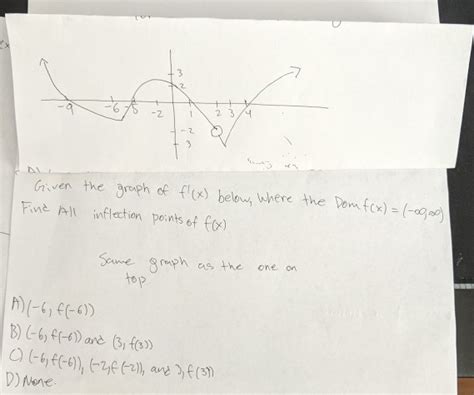 3
2
-9 -6 -5 -2 1 2 3 4
-2
3
Given the graph of f'(x) below, where the Dom f(x) = (-∞,∞)
Find All inflection points of f(x)
Same graph as the one on
top
A) (-6, f(-6))
B) (-6, f(-6)) and (3, f(3))
C) (-6, f(-6)), (-2, f(-2)), and 3, f(3))
D) None.